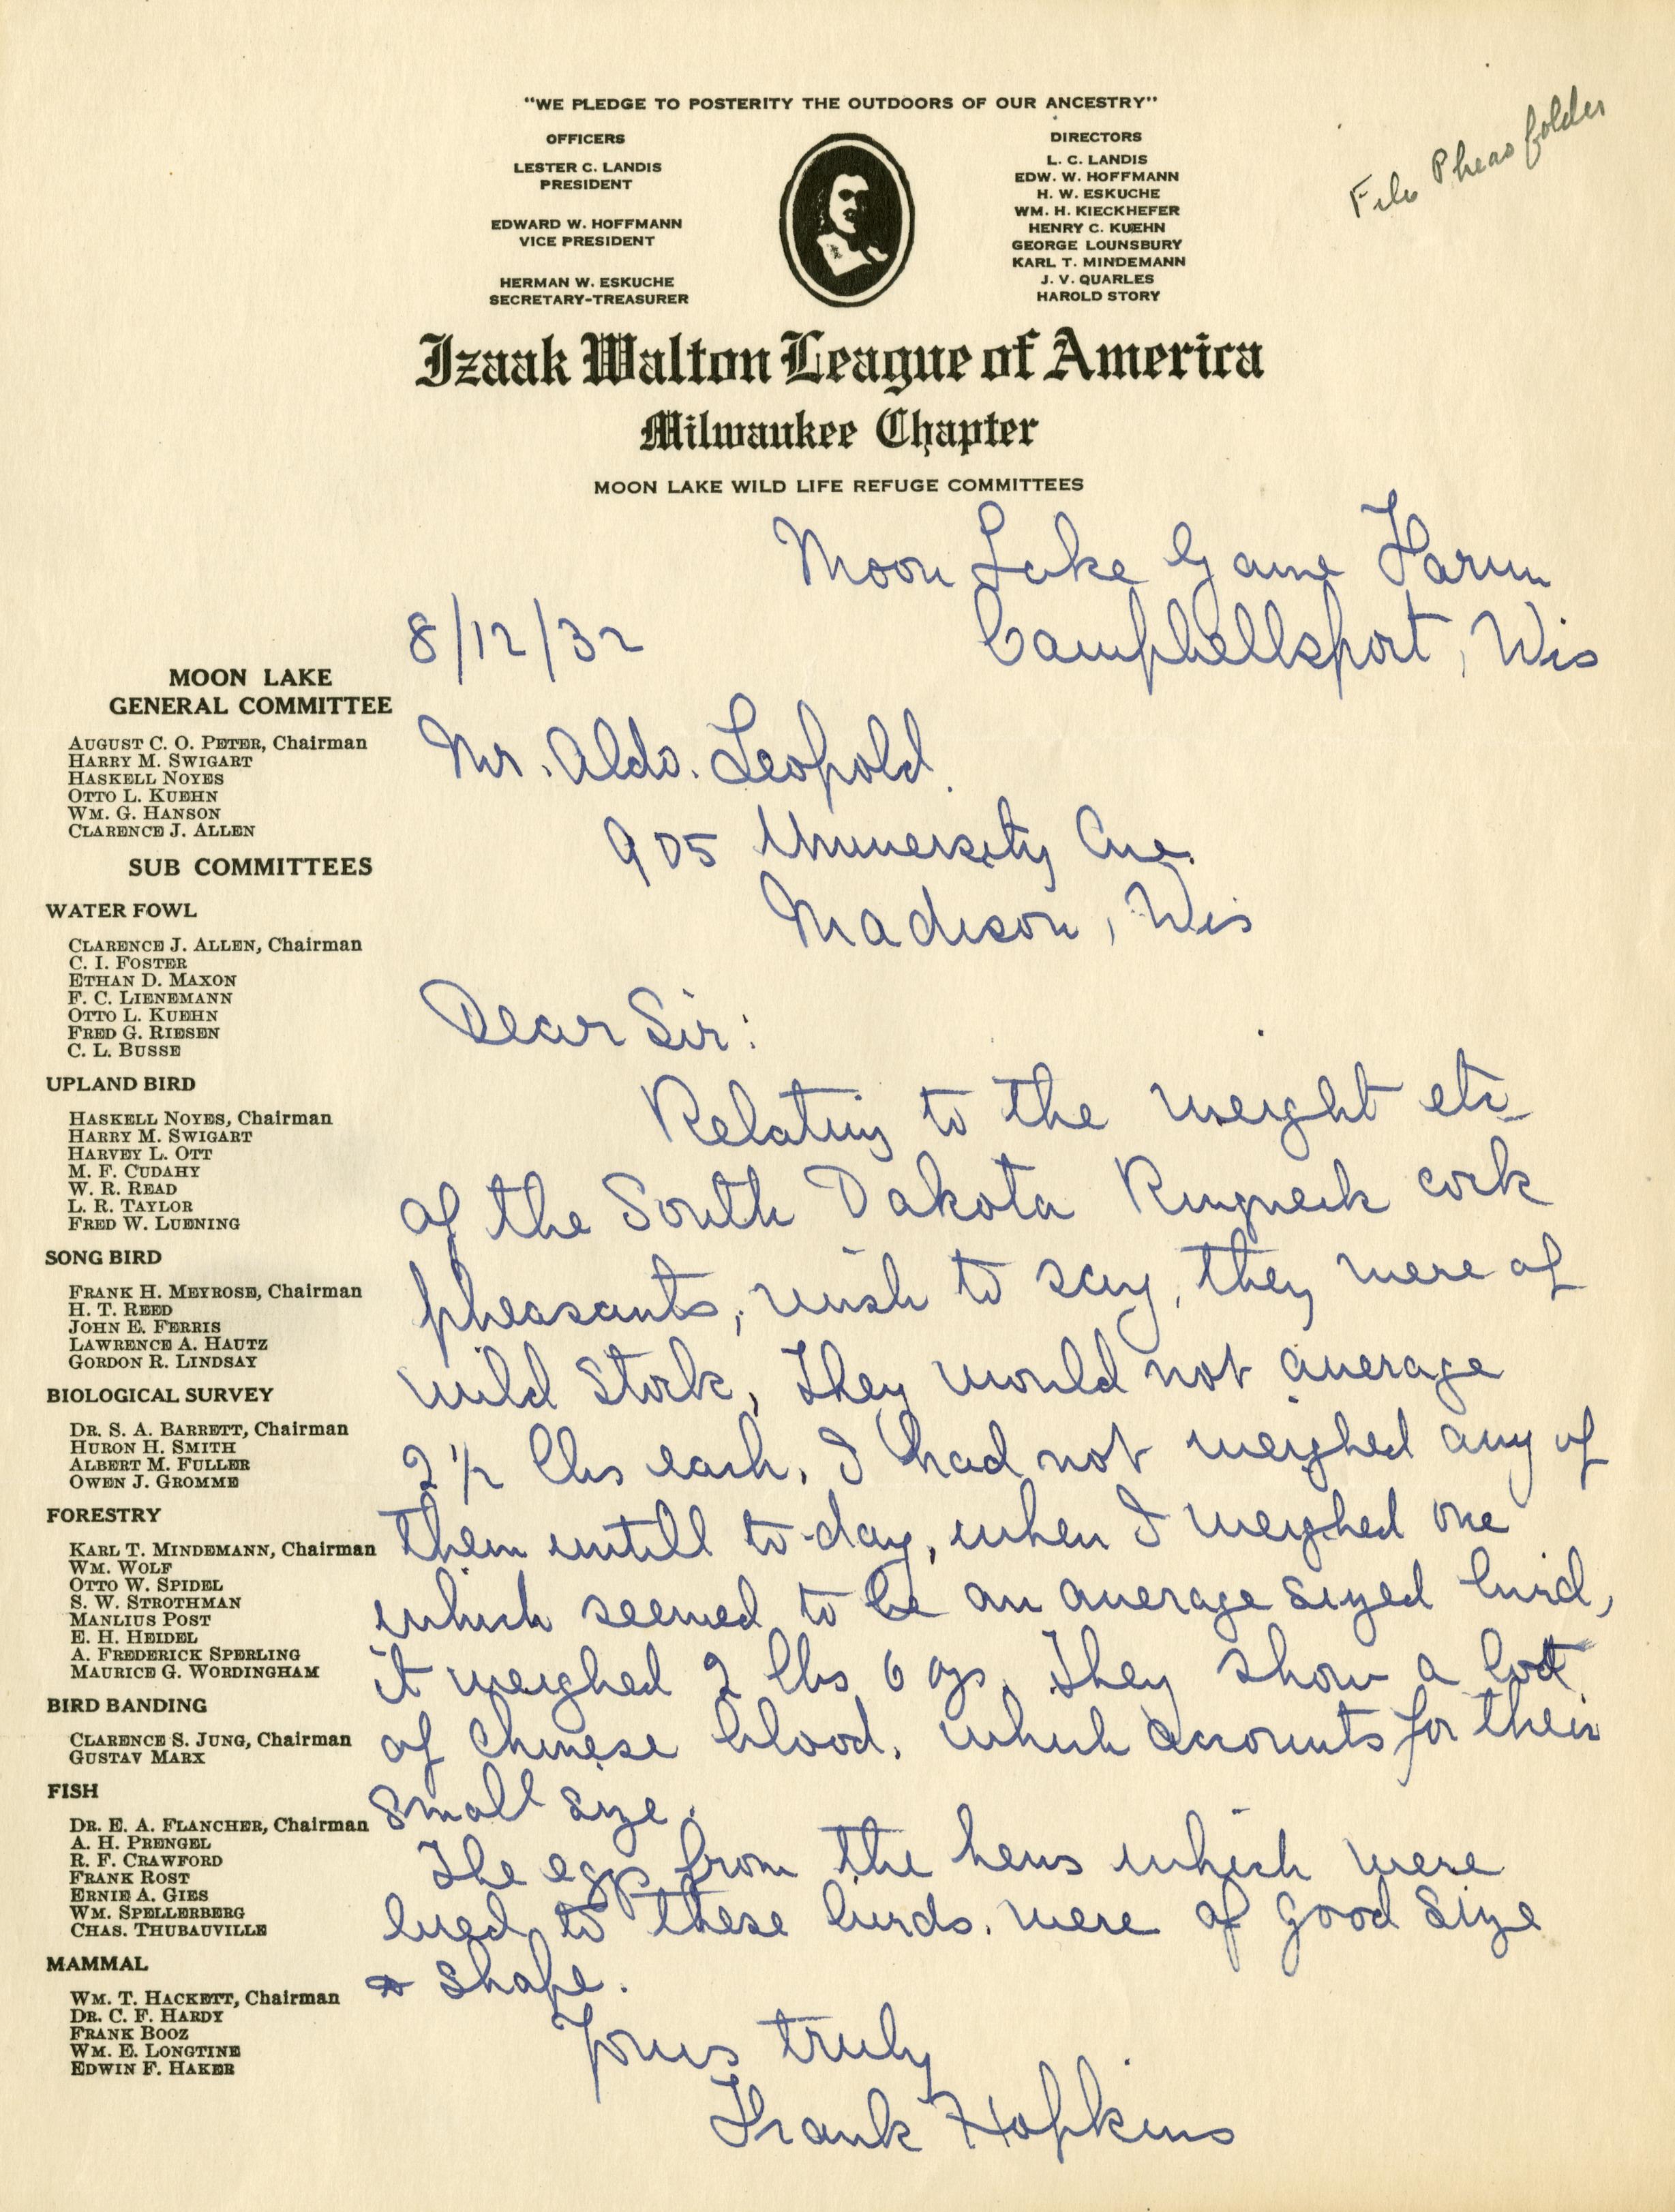 "WE PLEDGE TO POSTERITY THE OUTDOORS OF OUR ANCESTRY"
OFFICERS
LESTER C. LANDIS
PRESIDENT
EDWARD W. HOFFMANN
VICE PRESIDENT
HERMAN W. ESKUCHE
SECRETARY-TREASURER
DIRECTORS
L. C. LANDIS
EDW. W. HOFFMANN
H. W. ESKUCHE
WM. H. KIECKHEFER
HENRY C. KUEHN
GEORGE LOUNSBURY
KARL T. MINDEMANN
J. V. QUARLES
HAROLD STORY
File Pheas folder
Izaak Walton League of America
Milwaukee Chapter
MOON LAKE WILD LIFE REFUGE COMMITTEES
MOON LAKE
GENERAL COMMITTEE
AUGUST C. O. PETER, Chairman
HARRY M. SWIGART
HASKELL NOYES
OTTO L. KUEHN
WM. G. HANSON
CLARENCE J. ALLEN
SUB COMMITTEES
WATER FOWL
CLARENCE J. ALLEN, Chairman
C. I. FOSTER
ETHAN D. MAXON
F. C. LIENEMANN
OTTO L. KUEHN
FRED G. RIESEN
C. L. BUSSE
UPLAND BIRD
HASKELL NOYES, Chairman
HARRY M. SWIGART
HARVEY L. OTT
M. F. CUDAHY
W. R. READ
L. R. TAYLOR
FRED W. LUENING
SONG BIRD
FRANK H. MEYROSE, Chairman
H. T. REED
JOHN E. FERRIS
LAWRENCE A. HAUTZ
GORDON R. LINDSAY
BIOLOGICAL SURVEY
DR. S. A. BARRETT, Chairman
HURON H. SMITH
ALBERT M. FULLER
OWEN J. GROMME
FORESTRY
KARL T. MINDEMANN, Chairman
WM. WOLF
OTTO W. SPIDEL
S. W. STROTHMAN
MANLIUS POST
E. H. HEIDEL
A. FREDERICK SPERLING
MAURICE G. WORDINGHAM
BIRD BANDING
CLARENCE S. JUNG, Chairman
GUSTAV MARX
FISH
DR. E. A. FLANCHER, Chairman
A. H. PRENGEL
R. F. CRAWFORD
FRANK ROST
ERNIE A. GIES
WM. SPELLERBERG
CHAS. THUBAUVILLE
MAMMAL
WM. T. HACKETT, Chairman
DR. C. F. HARDY
FRANK BOOZ
WM. E. LONGTINE
EDWIN F. HAKER
Moon Lake Game Farm
8/12/32 Campbellsport, Wis
Mr. Aldo. Leopold.
905 University Ave.
Madison, Wis
Dear Sir:
Relating to the weight etc
of the South Dakota Ringneck cock
pheasants, wish to say, they were of
wild stock, They would not average
2 1/2 lbs each. I had not weighed any of
them untill to-day, when I weighed one
which seemed to be an average sized bird,
it weighed 2 lbs 6 ozs. They show a lot
of Chinese blood. which accounts for their
small size.
The eggs from the hens which were
bred to these birds. were of good size
& shape.
Yours truly
Frank Hopkins